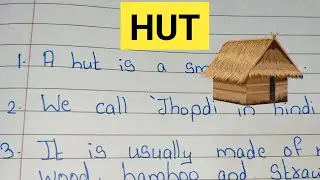 HUT
1. A hut is a
2. We call 'Jhopdi' in hindi
3. It is usually made of
wood, bamboo and straw